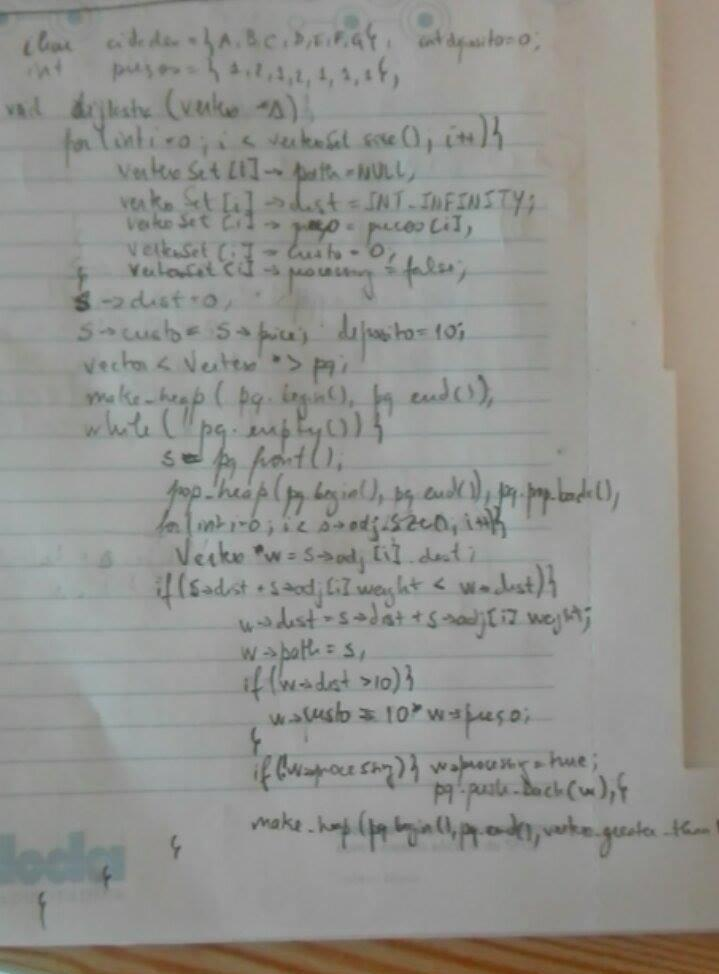 char cidades = {A, B, C, D, E, F, G}, int deposito=0;
int preços = { 1,2,1,2,1,1,1},
void dijkstra (vertex *s)
for (int i=0; i < vertexSet size(), i++){
vertexSet [i] → path = NULL,
vertex Set [i] → dist = INT_INFINITY;
vertexSet [i] → preço = precos [i],
vertexSet [i] → custo = 0;
} vertexSet [i] → processing = false;
s → dist = 0,
s → custo = s → price; deposito = 10;
vector < Vertex *> pq;
make_heap ( pq.begin(), pq end()),
while ( ! pq.empty()) {
s = pq front();
pop_heap (pq.begin(), pq.end()), pq.pop_back(),
for (int i=0; i < s→adj.size(), i++){
Vertex *w = s→adj [i].dest;
if (s→dist + s→adj[i] weight < w→dist){
w→dist = s→dist + s→adj[i] weight;
w→path = s,
if (w→dist >10){
w→custo = 10* w→preço;
}
if (!w→processing){ w→processing=true;
pq.push_back(w),}
make_heap (pq.begin(), pq.end(), vertex_greater_than
}
}
}
doda